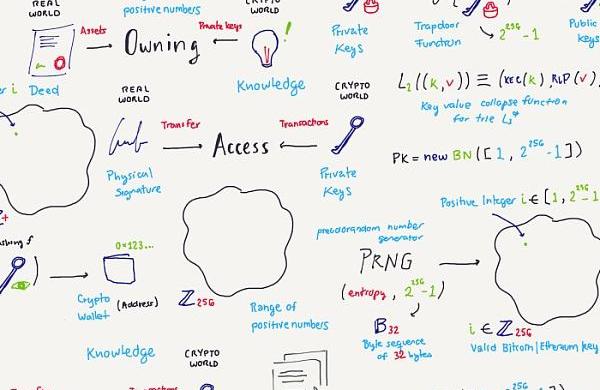 positive numbers
WORLD
Private keys
Assets
Owning
Deed
Knowledge
REAL
WORLD
CRYPTO
WORLD
Private
Keys
Trapdoor
Function
2^256-1
Public
Keys
L₂((k,v)) ≡ (KEC(k), RLP(v)
Key value collapse function
for trie
Transfer
Access
Transactions
Physical
Signature
Private
Keys
PK = new BN([1, 2^256-1])
Positive Integer i ∈ [1, 2^256-1
pseudorandom number
generator
PRNG
(entropy, 2^256-1)
B₃₂
Byte sequence
of 32 bytes
i ∈ ℤ₂₅₆
Valid Bitcoin/Ethereum key
0x123...
Crypto
Wallet
(Address)
ℤ₂₅₆
Range of
positive numbers
Knowledge
CRYPTO
WORLD